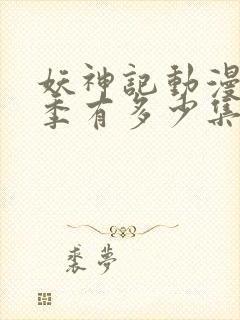 妖神記動漫
季有多少集
裘夢